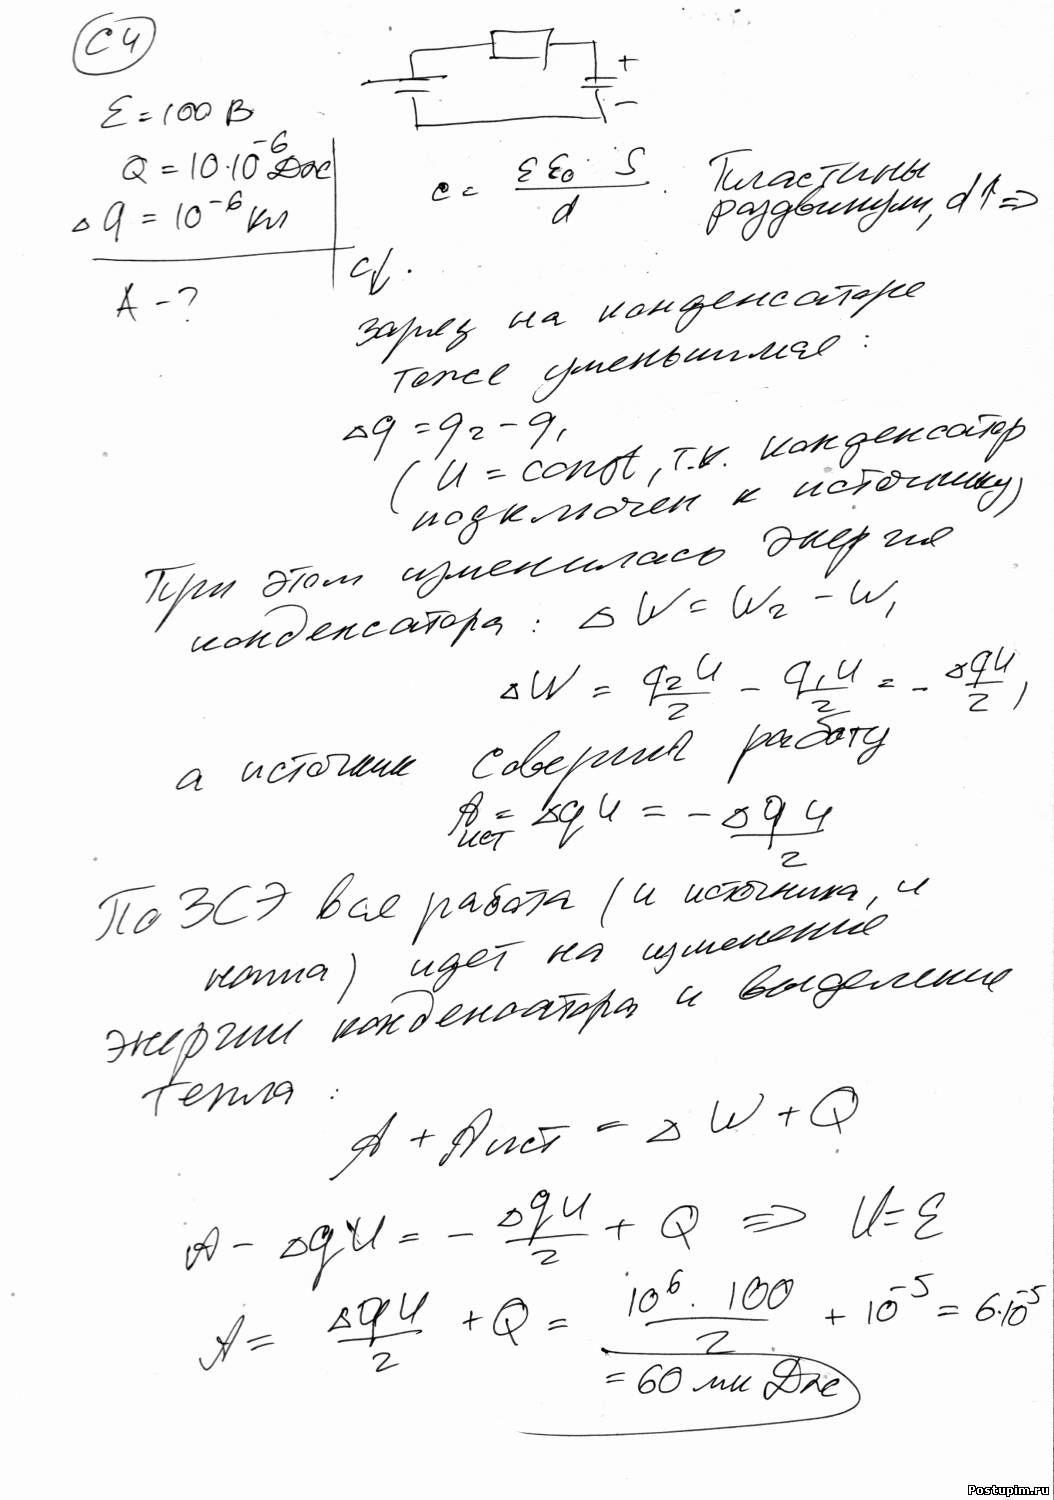 С4
ℰ = 100 В
Q = 10·10⁻⁶ Дж
Δq = 10⁻⁶ Кл
A - ?
+
−
c = εε₀·S/d. Пластины
раздвинули, d↑ ⇒
c↓.
заряд на конденсаторе
тоже уменьшился:
Δq = q₂ − q₁
(U = const, т.к. конденсатор
подключен к источнику)
При этом изменилась энергия
конденсатора: ΔW = W₂ − W₁
ΔW = q₂U/2 − q₁U/2 = − ΔqU/2,
а источник совершил работу
Aист = ΔqU = − ΔqU/2
По ЗСЭ вся работа (и источника, и
наша) идет на изменение
энергии конденсатора и выделение
тепла:
A + Aист = ΔW + Q
A − ΔqU = − ΔqU/2 + Q ⇒ U = ℰ
A = ΔqU/2 + Q = 10⁶·100/2 + 10⁻⁵ = 6·10⁻⁵
= 60 мк Дж
Postupim.ru